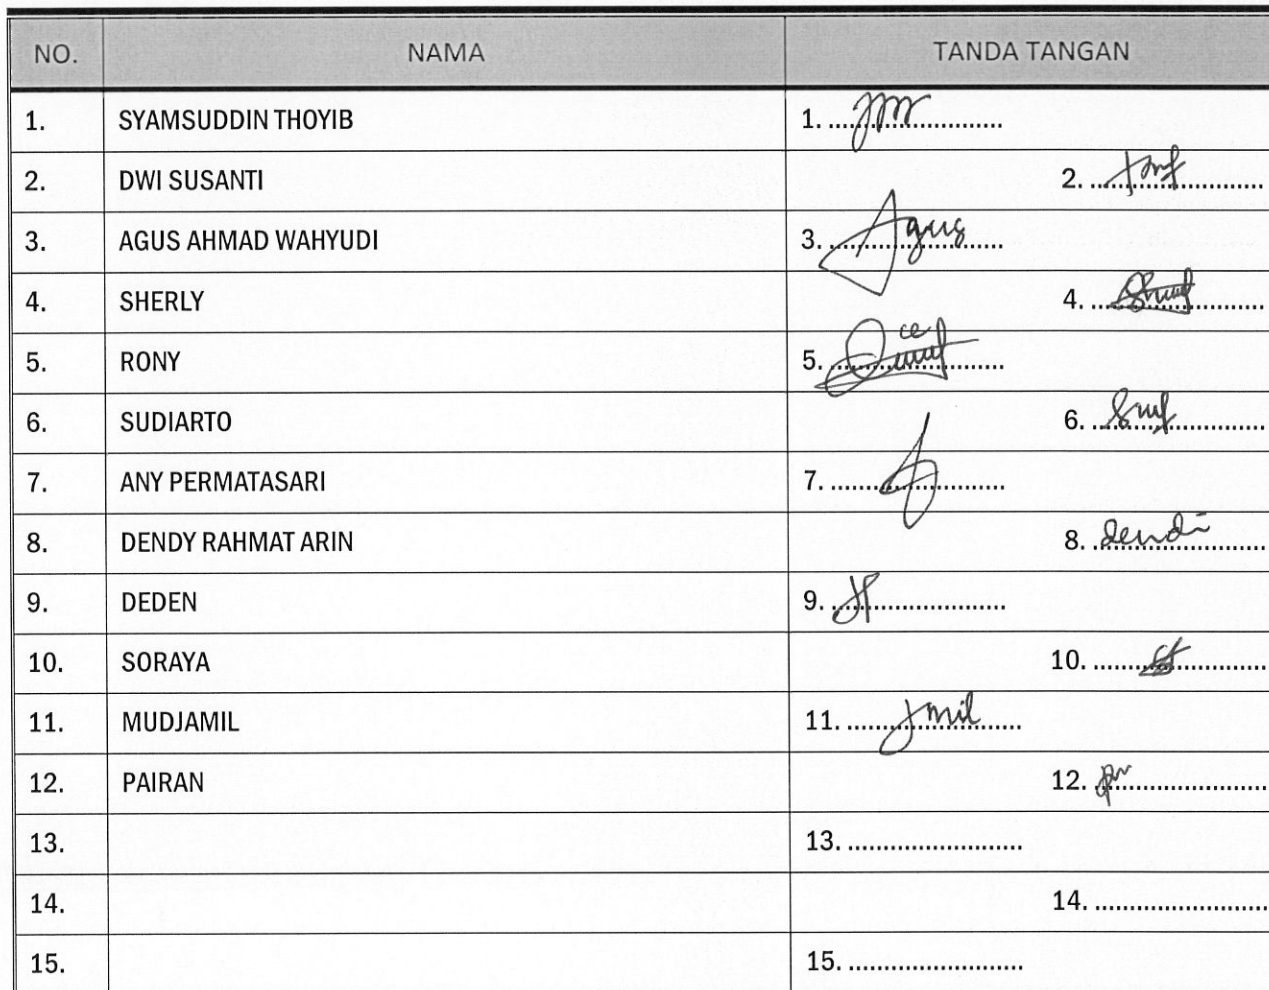 NO. NAMA TANDA TANGAN
1. SYAMSUDDIN THOYIB 1. ........................
2. DWI SUSANTI 2. ........................
3. AGUS AHMAD WAHYUDI 3. Agus
4. SHERLY 4. ........................
5. RONY 5. ........................
6. SUDIARTO 6. ........................
7. ANY PERMATASARI 7. ........................
8. DENDY RAHMAT ARIN 8. dendi
9. DEDEN 9. ........................
10. SORAYA 10. ........................
11. MUDJAMIL 11. Jmil
12. PAIRAN 12. ........................
13. 13. ........................
14. 14. ........................
15. 15. ........................